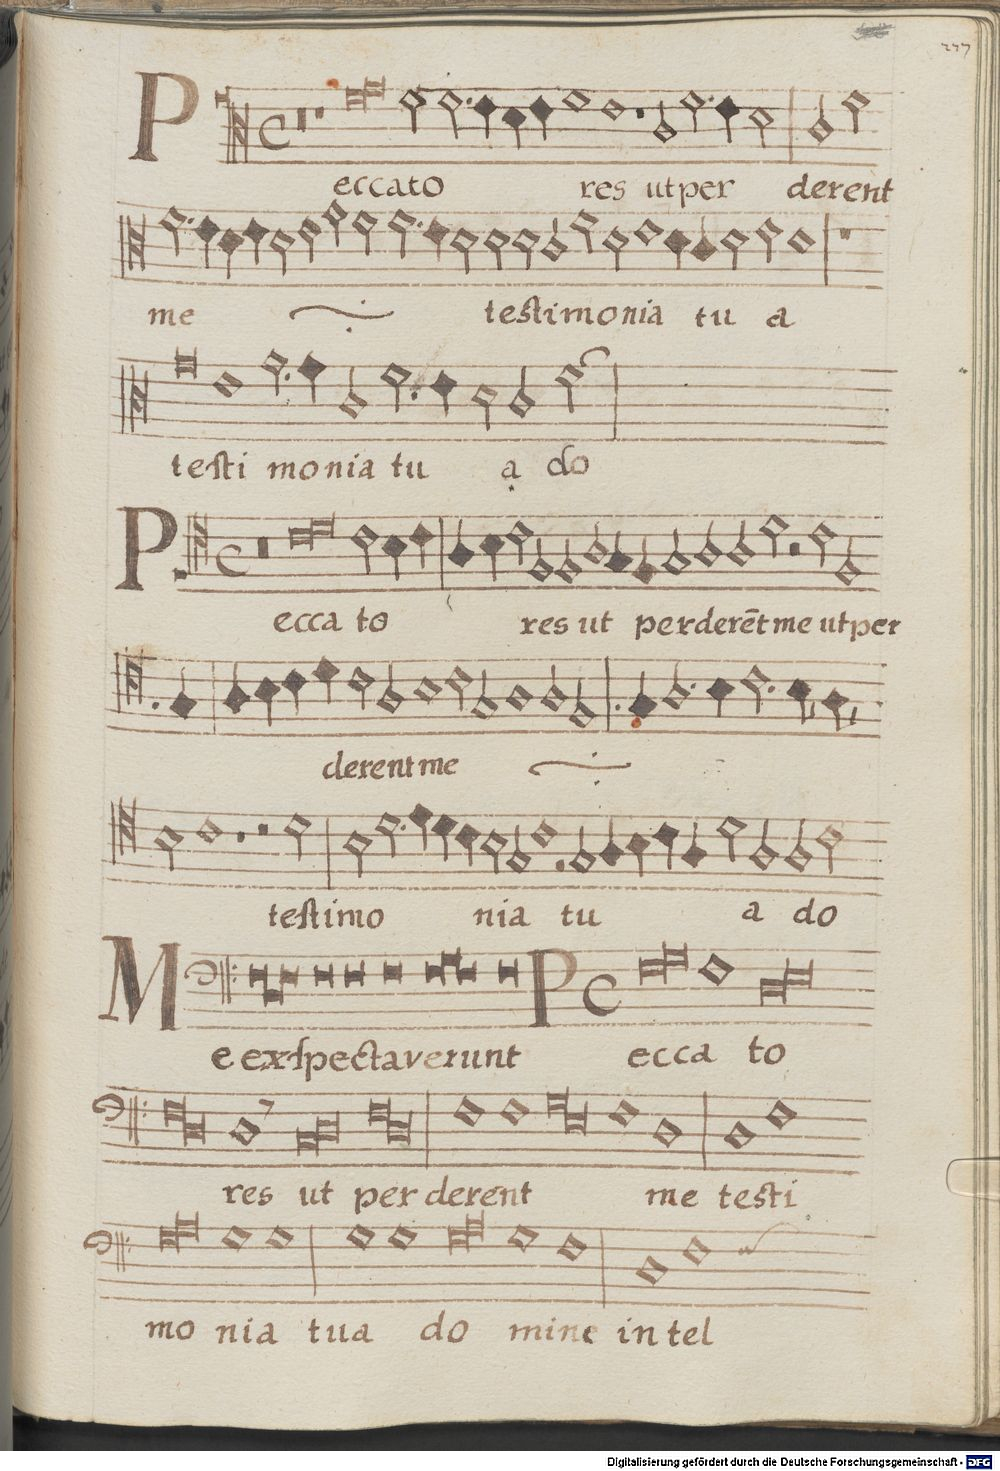 227
P
eccato res ut per derent
me testimonia tu a
testi monia tu a do
P
ecca to res ut perderēt me ut per
derent me
testimo nia tu a do
M P
e exspectaverunt ecca to
res ut per derent me testi
mo nia tua do mine intel
Digitalisierung gefördert durch die Deutsche Forschungsgemeinschaft - DFG